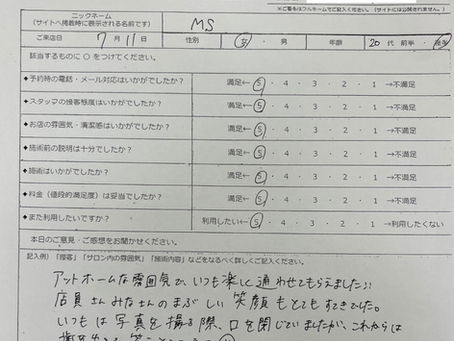 ※ご署名はフルネームでご記入ください（サイトには公開されません。）
ニックネーム
（サイトへ掲載時に表示される名前です） MS
ご来店日 7 月 11 日 性別 女 ・ 男 年齢 20 代 前半 ・ 後半
該当するものに ○ をつけてください。
◆予約時の電話・メール対応はいかがでしたか？ 満足← 5 ・ 4 ・ 3 ・ 2 ・ 1 →不満足
◆スタッフの接客態度はいかがでしたか？ 満足← 5 ・ 4 ・ 3 ・ 2 ・ 1 →不満足
◆お店の雰囲気・清潔感はいかがでしたか？ 満足← 5 ・ 4 ・ 3 ・ 2 ・ 1 →不満足
◆施術前の説明は十分でしたか？ 満足← 5 ・ 4 ・ 3 ・ 2 ・ 1 →不満足
◆施術はいかがでしたか？ 満足← 5 ・ 4 ・ 3 ・ 2 ・ 1 →不満足
◆料金（値段的満足度）は妥当でしたか？ 満足← 5 ・ 4 ・ 3 ・ 2 ・ 1 →不満足
◆また利用したいですか？ 利用したい← 5 ・ 4 ・ 3 ・ 2 ・ 1 →利用したくない
本日のご意見・ご感想をお聞かせください。
記入例）「接客」「サロン内の雰囲気」「施術内容」などをなるべく詳しくご記入ください。
アットホームな雰囲気で、いつも楽しく通わせてもらえました!!
店員さんみなさんのまぶしい笑顔もとてもすてきでした。
いつもは写真を撮る際、口を閉じていましたが、これからは